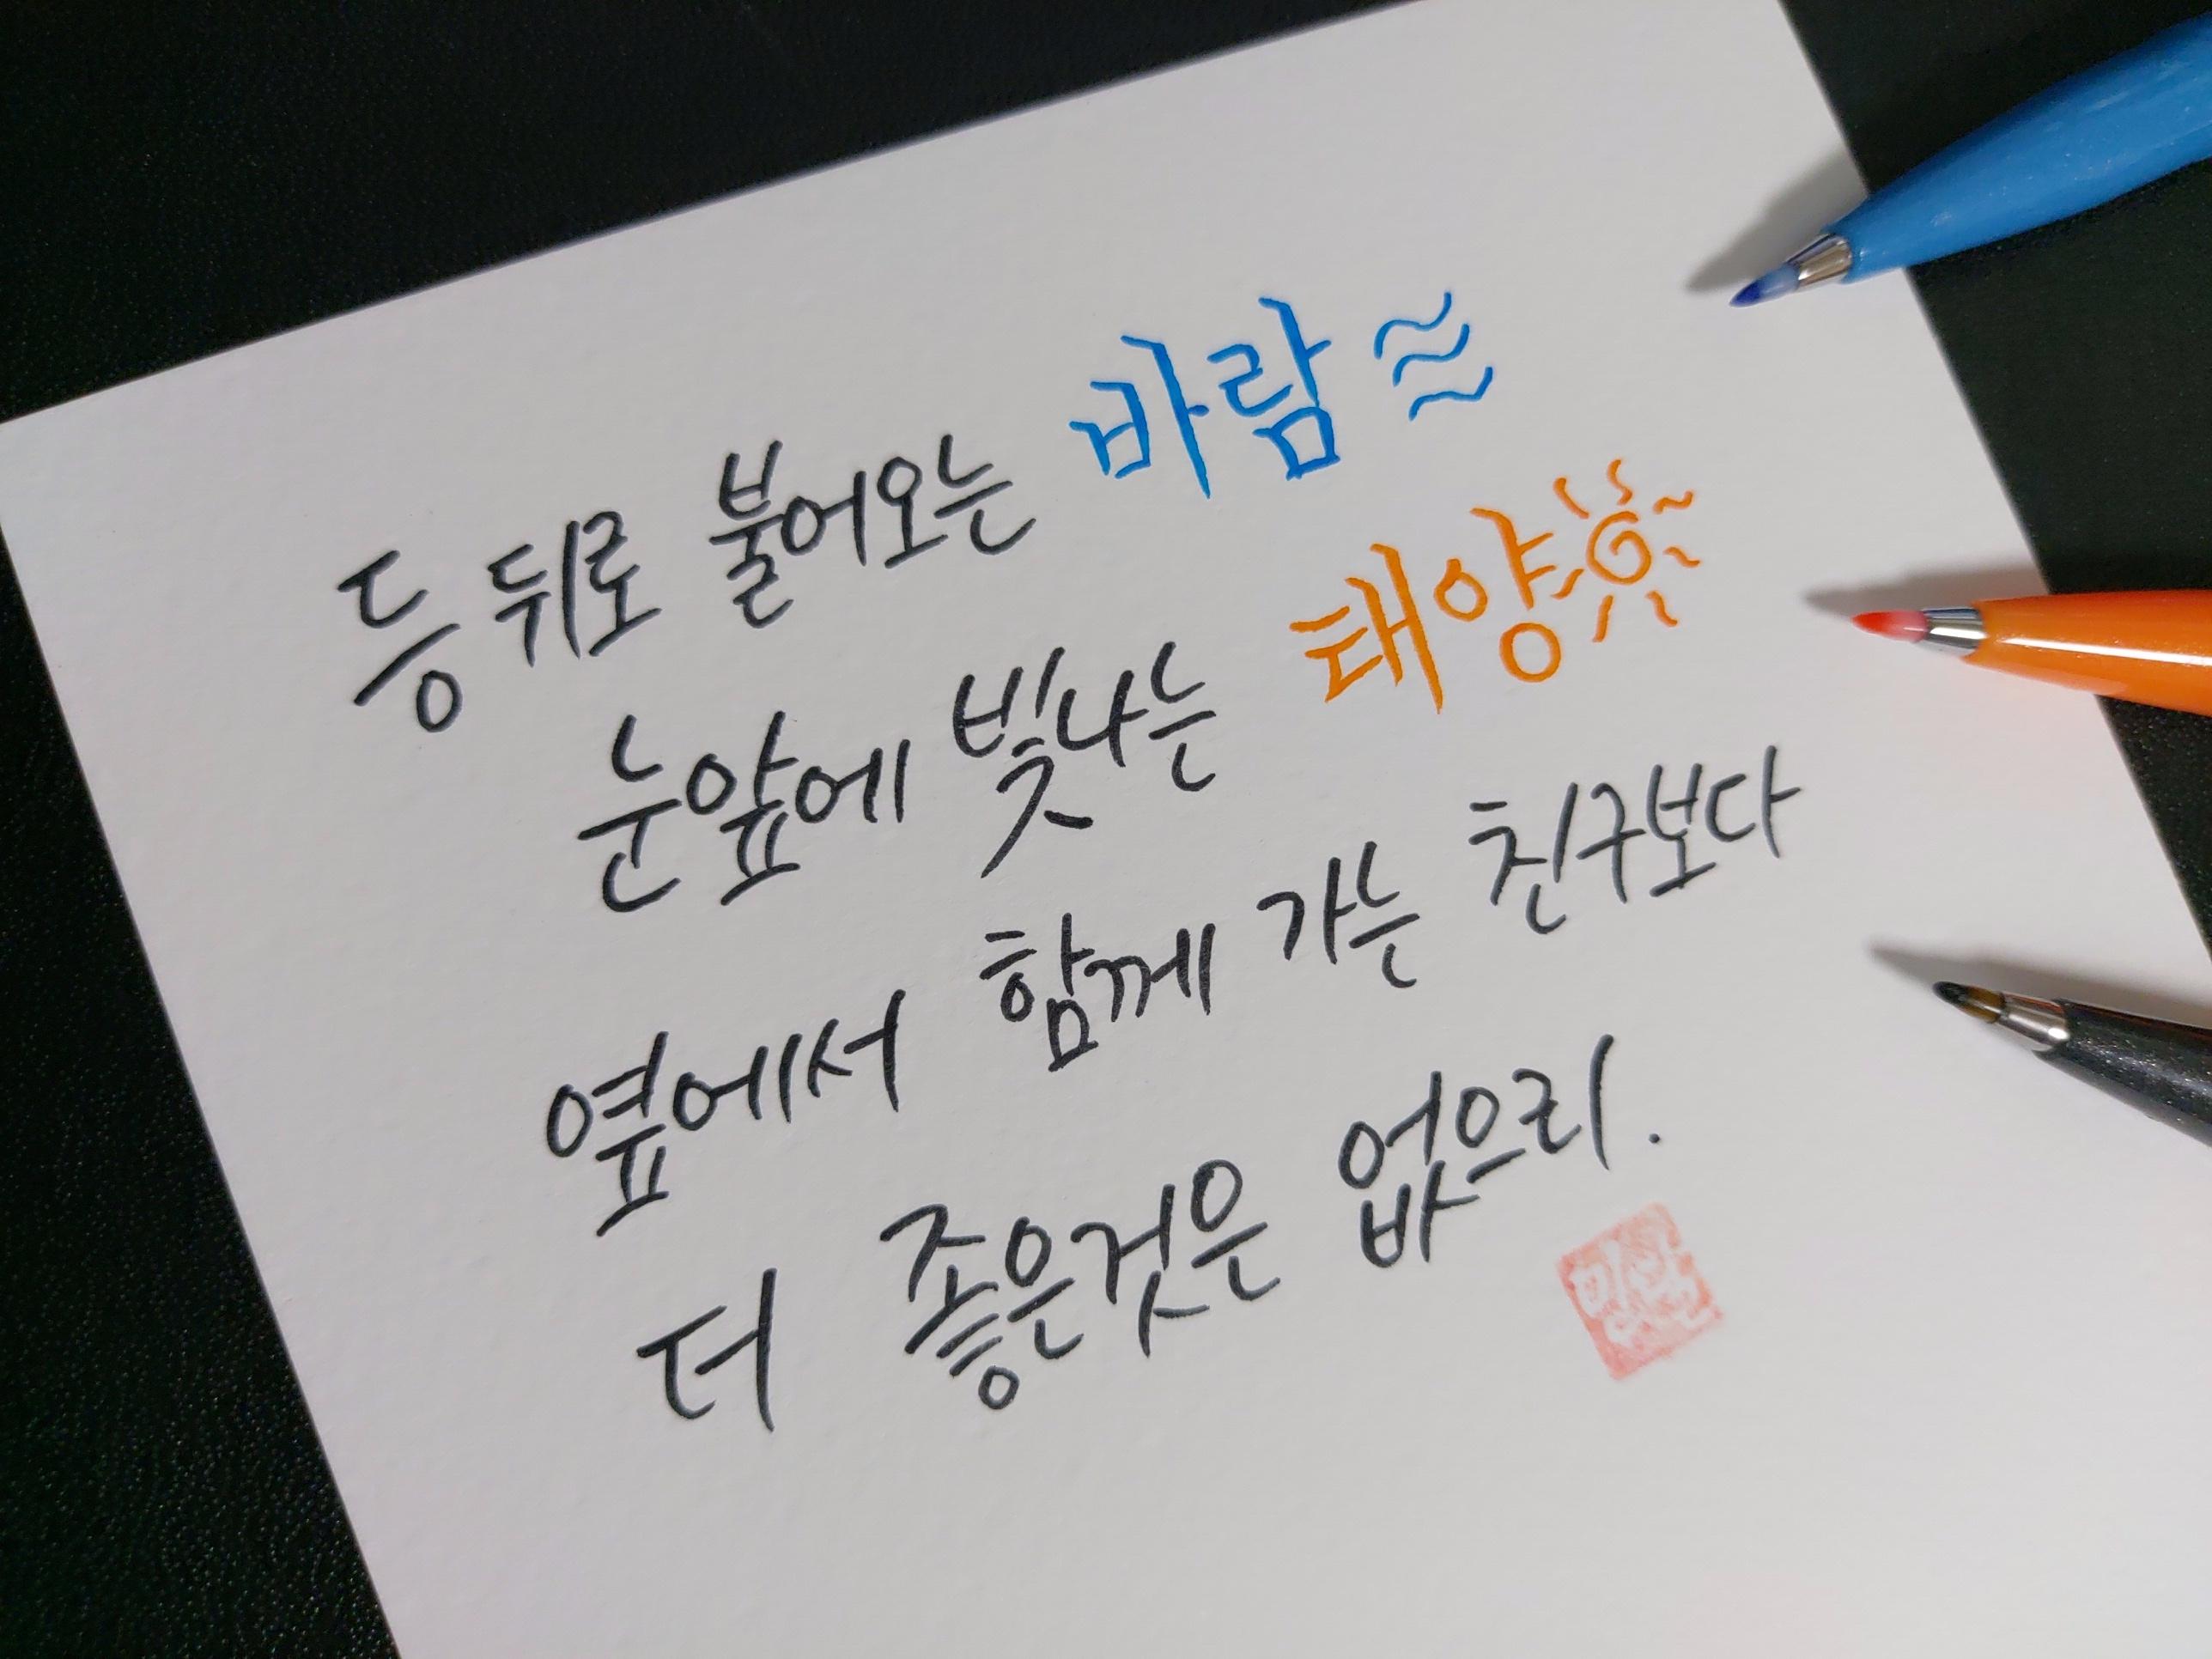 등 뒤로 불어오는 바람
눈앞에 빛나는 태양
옆에서 함께 가는 친구보다
더 좋은것은 없으리.